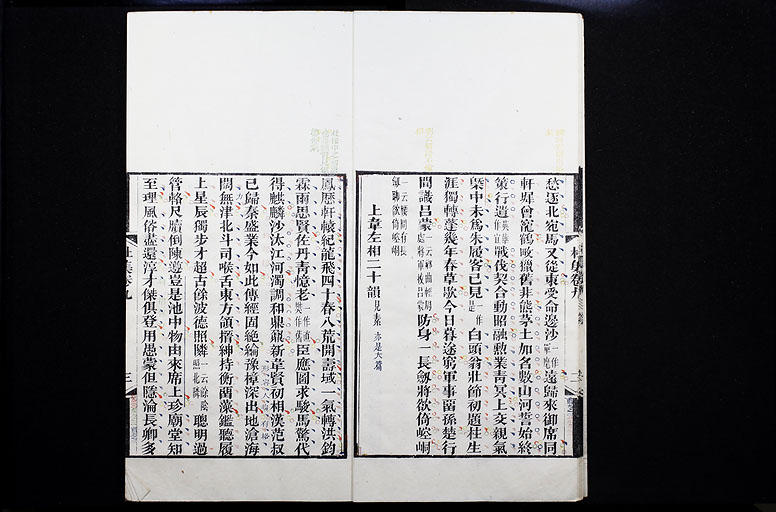 愁逐北宛馬又從東受命邊沙遠歸來御席同
軒墀曾寵鶴畋獵舊非熊茅土加名數山河誓始終
策行遺戰伐契合動昭融勳業青冥上交親氣
槩中未為朱履客已見一作是白頭翁壯節初題柱生
涯獨轉蓬幾年春草歇今日暮途窮軍事留孫楚行
間識呂蒙防身一長劍將欲倚崆峒
上韋左相二十韻見素 亦是大篇
鳳歷軒轅紀龍飛四十春八荒開壽域一氣轉洪鈞
霖雨思賢佐丹青憶老臣應圖求駿馬驚代
得麒麟沙汰江河濁調和鼎鼐新韋賢初相漢范叔
已歸秦盛業今如此傳經固絕倫豫樟深出地滄海
闊無津北斗司喉舌東方領搢紳持衡留藻鑑聽履
上星辰獨步才超古餘波德照隣一云餘陰照北隣聰明過
管輅尺牘倒陳遵豈是池中物由來席上珍廟堂知
至理風俗盡還淳才傑俱登用愚蒙但隱淪長卿多
杜集卷九 三